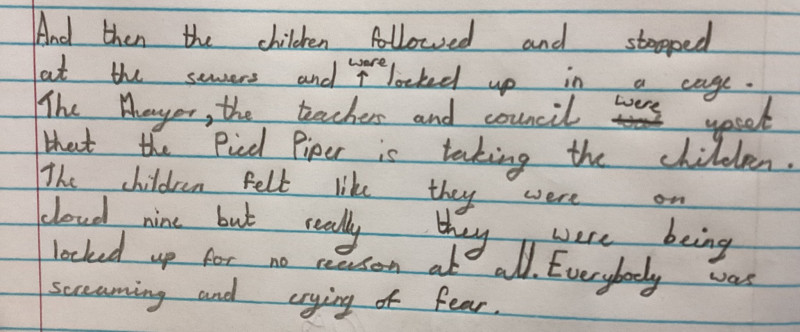 And then the children followed and stopped
at the sewers and were locked up in a cage.
The Mayor, the teachers and council were upset
that the Pied Piper is taking the children.
The children felt like they were on
cloud nine but really they were being
locked up for no reason at all. Everybody was
screaming and crying of fear.